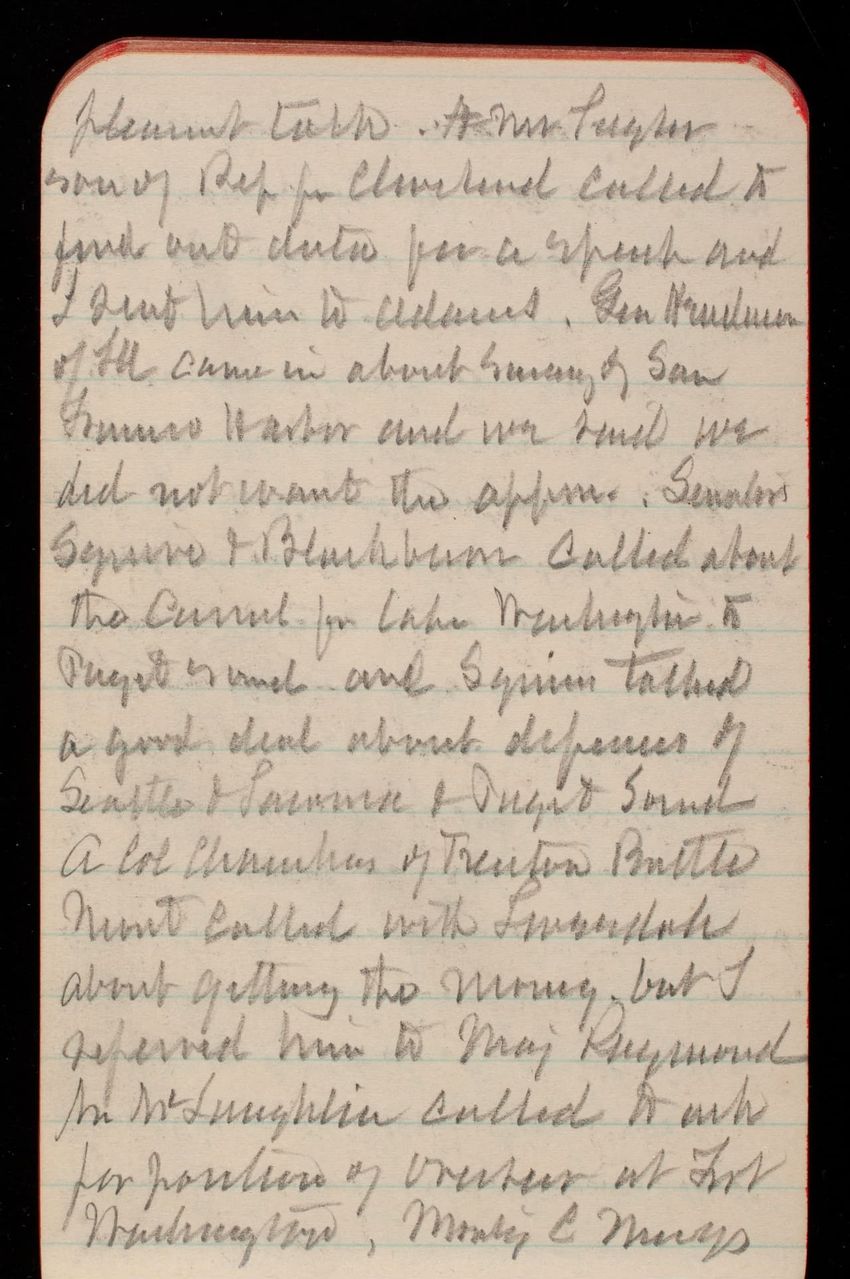 pleasant talk. A Mr Taylor
son of Rep fr Cleveland called to
find out data for a speech and
I sent him to Adams. Gen Henderson
of Ill came in about Survey of San
Francisco Harbor and we said we
did not want the apprn. Senators
Squire & Blackburn called about
the Canal fr Lake Washington to
Puget Sound and Squire talked
a good deal about defenses of
Seattle & Tacoma & Puget Sound
A Col Chambers of Trenton Battle
Mont called with
about getting the money. but I
referred him to Maj Raymond
Mr McLaughlin called to ask
for position of Overseer at Fort
Washington, Monty C Meigs